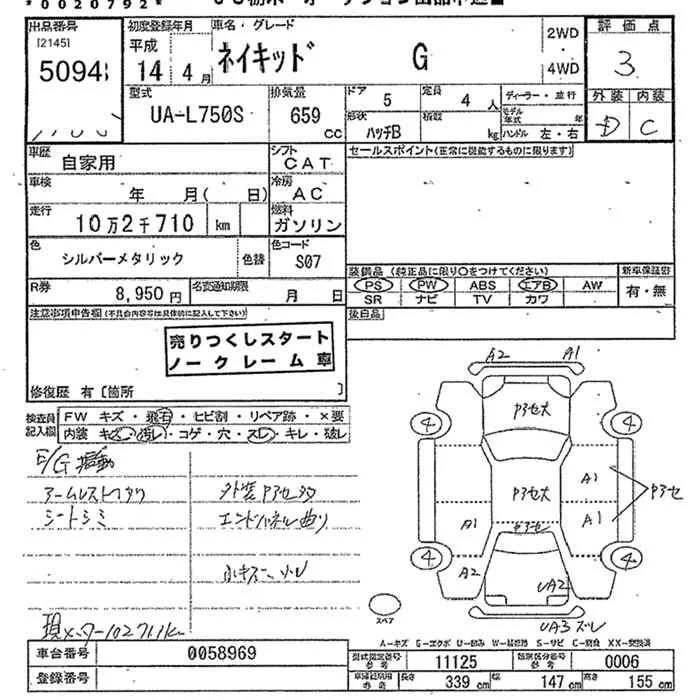 *0020792*
出品番号
[2145]
初度登録年月
車名・グレード
評価点
平成
14 4月
ネイキッド G
2WD
4WD
3
型式
排気量
ドア
定員
ディーラー・並行
外装 内装
UA-L750S
659
cc
5
4 人
モデル年式
年
形状
積載
ハッチB
kg
ハンドル 左・右
D C
車歴
シフト
セールスポイント(正常に機能するものに限ります)
自家用
CAT
車検
冷房
年 月( 日)
AC
走行
燃料
10万2千710 km
ガソリン
色
色コード
シルバーメタリック
色替
S07
装備品 (純正品に限り○をつけてください)
新車保証書
R券
名変通知期限
PS PW ABS エアB AW
有・無
8,950円
月 日
SR ナビ TV カワ
注意事項申告欄(不具合内容等は具体的に記入して下さい)
後日品
売りつくしスタート
ノークレーム車
修復歴 有〔箇所 〕
検査員
記入欄
FW キズ・飛石・ヒビ割・リペア跡・×要
内装 キズ・汚れ・コゲ・穴・スレ・キレ・破レ
E/G振動
シートシミ
外装アセ多
エンドパネル曲り
A2 A1
4 4
アセ大
A1
アセ大
A1
アセ
A1 A1
アセ
4 4
A2 UA2
スペア
UA3 ズレ
A-キズ G-エクボ U-凹み W-補修跡 S-サビ C-腐食 XX-交換済
車台番号
0058969
型式指定番号
参考
11125
類別区分番号
参考
0006
登録番号
車検証用
参考
長さ 339 cm
幅 147 cm
高さ 155 cm